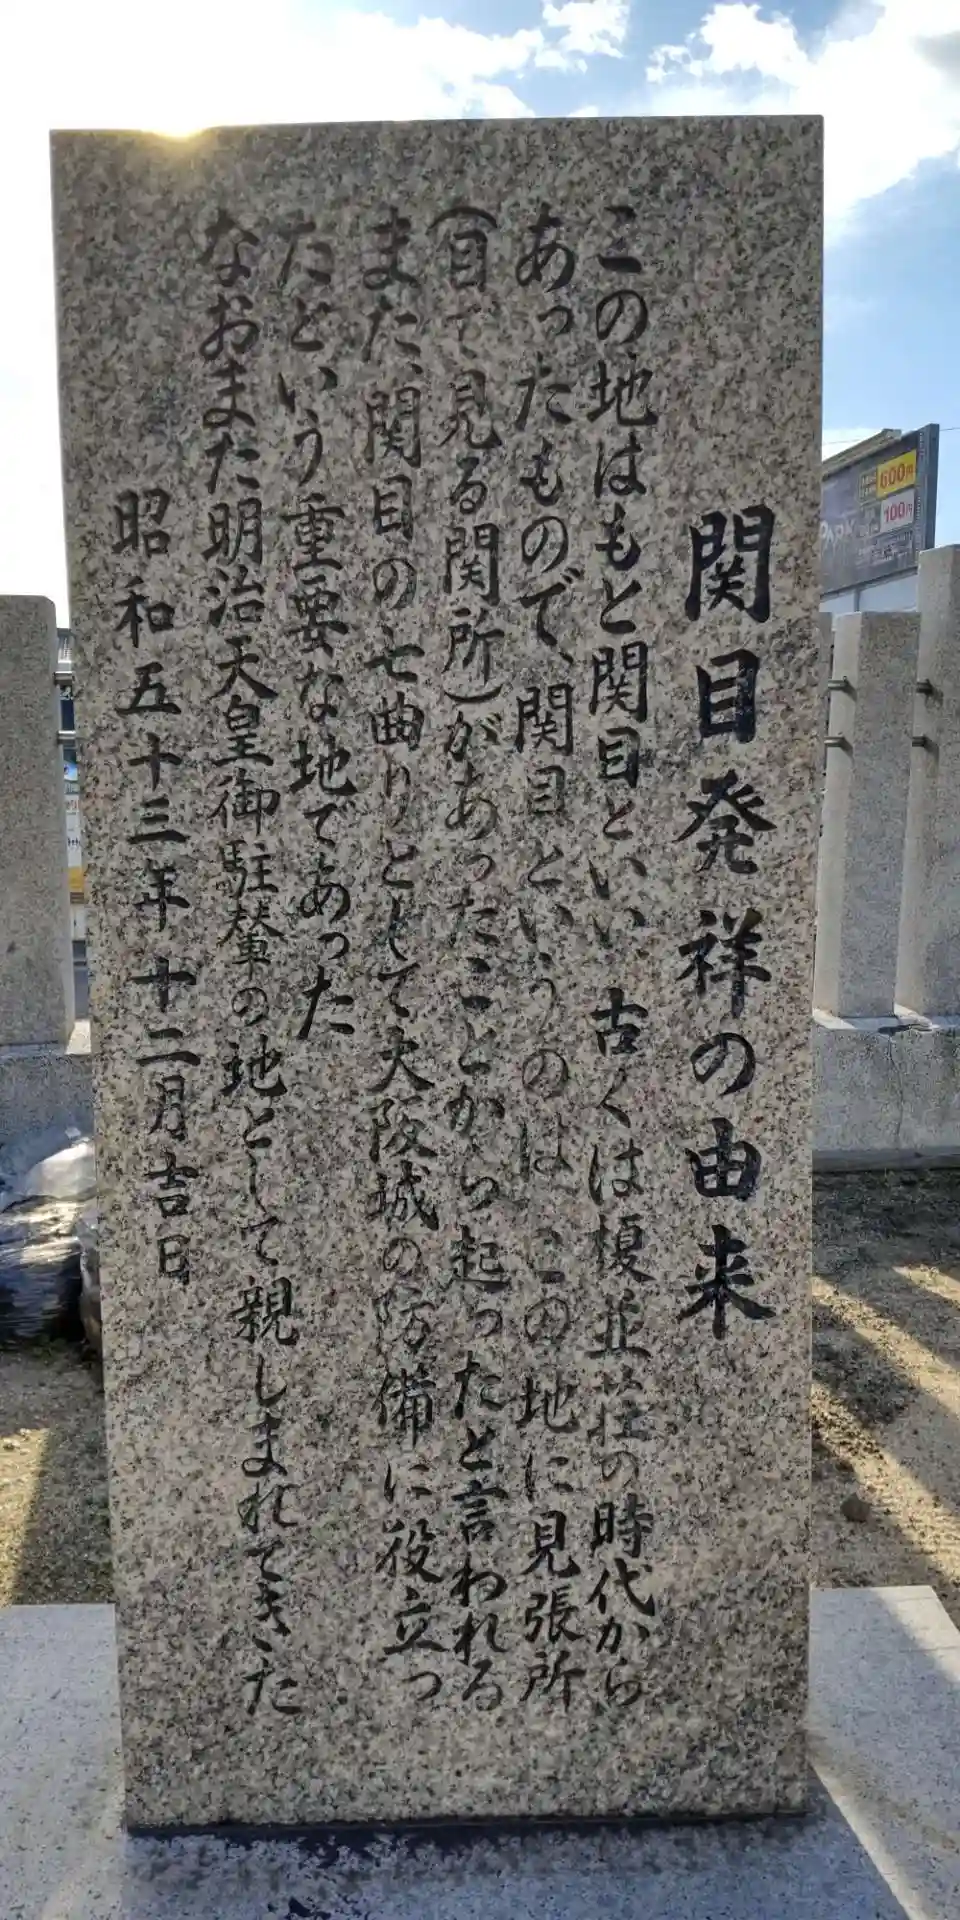 関目発祥の由来
この地はもと関目といい 古くは榎並荘の時代から
あったもので、関目というのは、この地に見張所
(目で見る関所)があったことから起ったと言われる
また、関目の七曲りとして大阪城の防備に役立っ
たという重要な地であった
なおまた明治天皇御駐輦の地として親しまれてきた
昭和五十三年十二月吉日
600円
100円
PARK